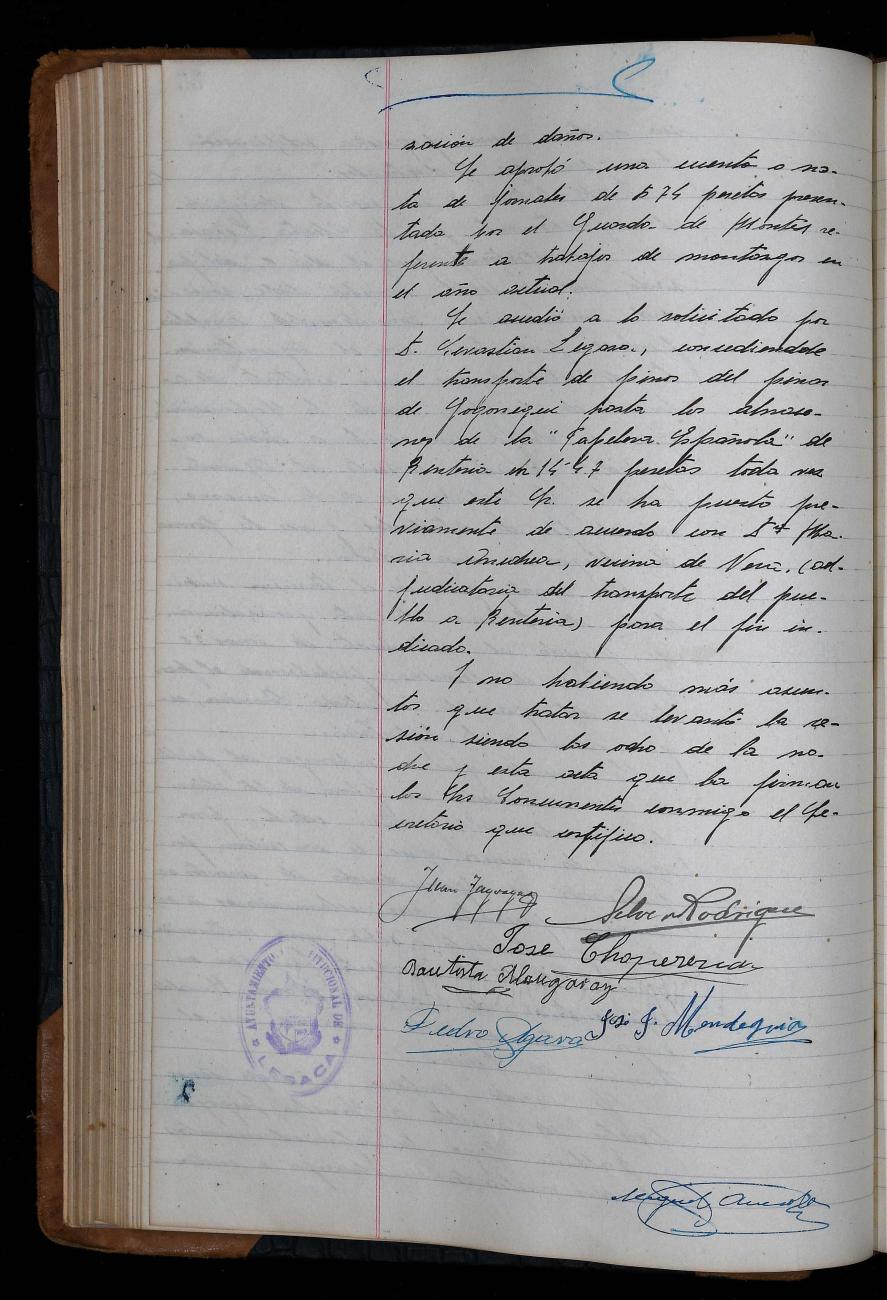 zación de daños.
Se aprobó una cuenta o no-
ta de jornales de 574 pesetas presen-
tada por el Guarda de Montes re-
ferente a trabajos de montazgos en
el año actual.
Se accedió a lo solicitado por
D. Sevastian Legasa, concediendole
el transporte de pinos del pinar
de hasta los almace-
nes de la "Papelera Española" de
Renteria en 14'47 pesetas toda vez
que este Sr. se ha puesto pre-
viamente de acuerdo con Dª Ma-
ria, vecina de Vera, (ad-
judicataria del transporte del pue-
blo a Renteria) para el fin in-
dicado.
Y no habiendo más asun-
tos que tratar se levantó la se-
sión siendo las ocho de la no-
che y esta acta que la firman
los Srs Concurrentes conmigo el Se-
cretario que certifico.
Juan
Silver Rodrigue
Jose Choperena
Bautista Mongaray
Pedro
José J. Mendeguia
AYUNTAMIENTO CONSTITUCIONAL DE
LESACA
Miguel